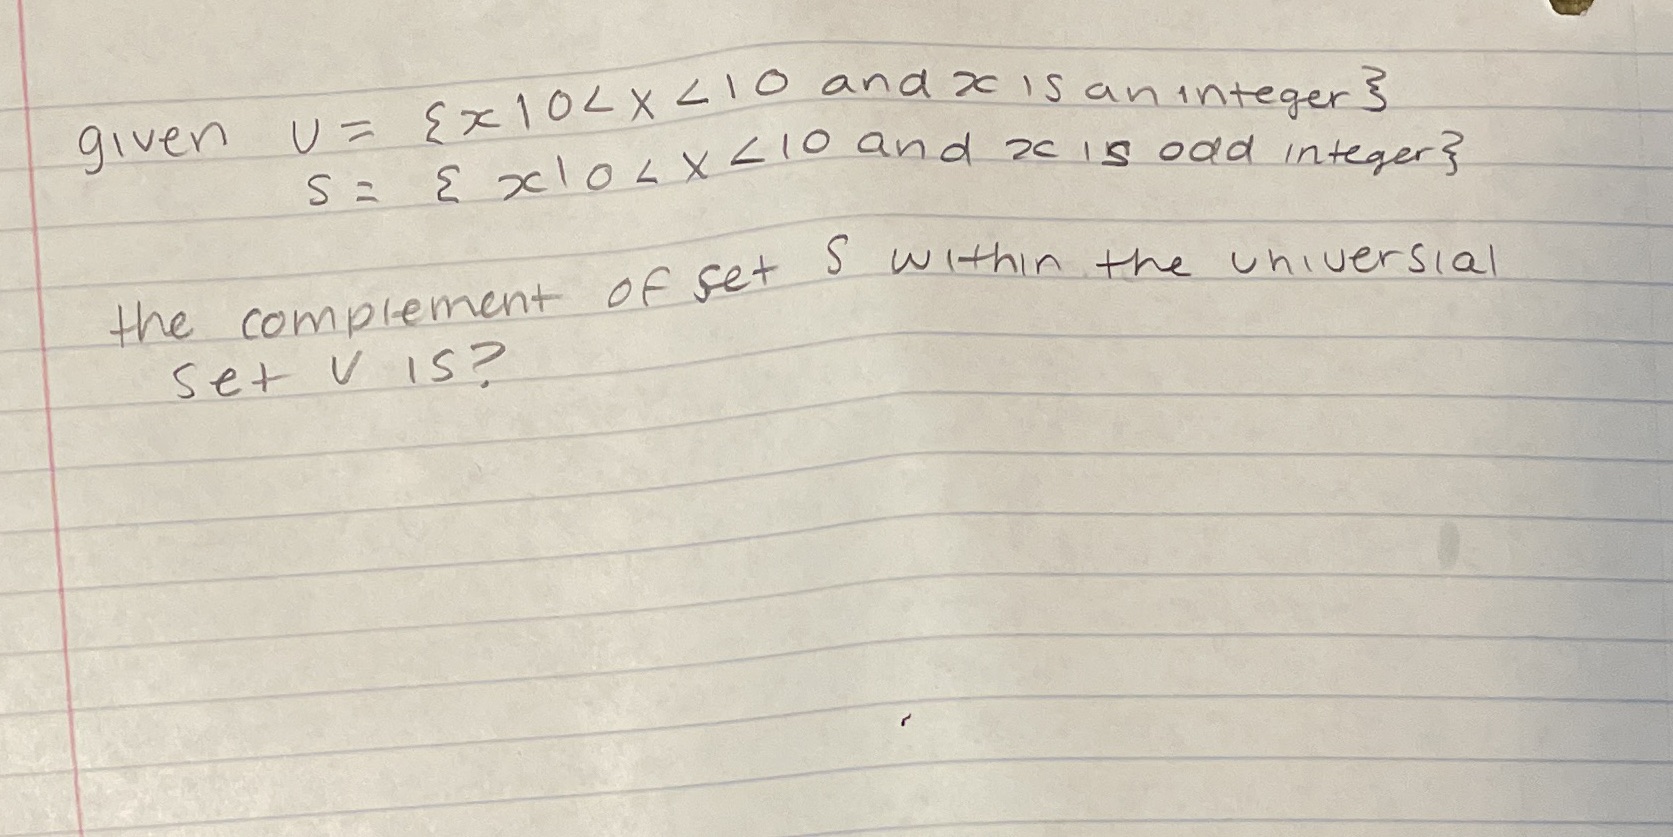 given U = {x|0<x<10 and x is an integer}
S = {x|0<x<10 and x is odd integer}
the complement of set S within the universial
set U is?